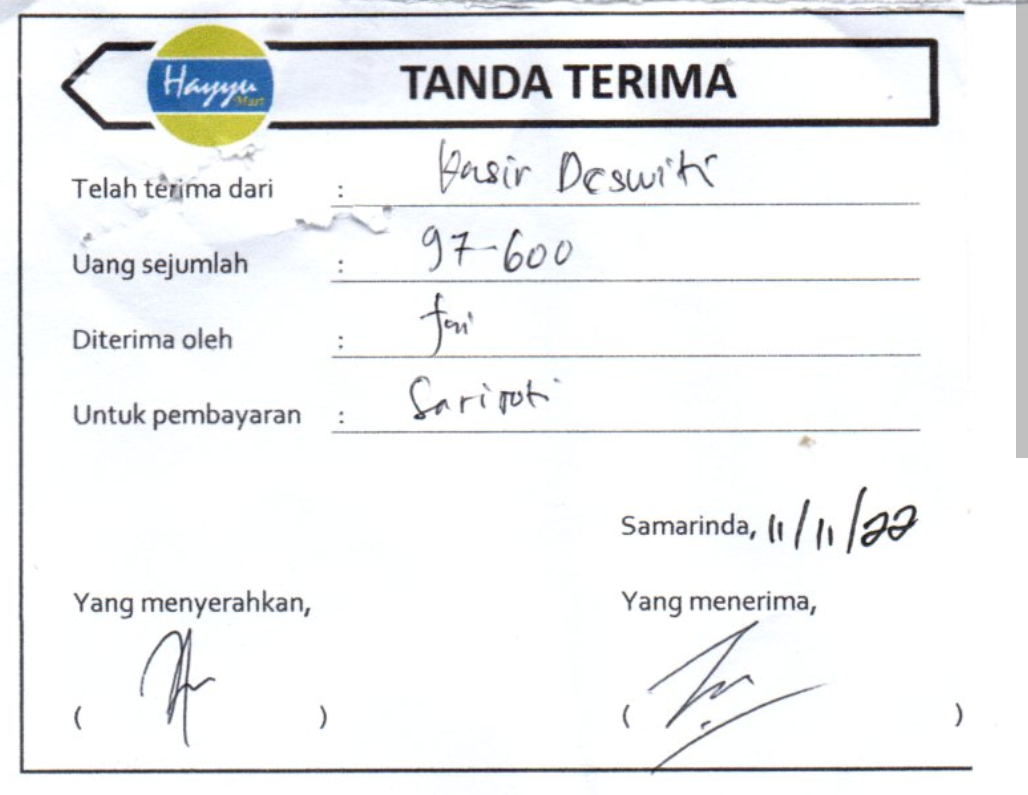 Hayyu
Mart
TANDA TERIMA
Telah terima dari : Kasir Deswiti
Uang sejumlah : 97-600
Diterima oleh :
Untuk pembayaran : Sari roti
Samarinda, 11/11/22
Yang menyerahkan,
Yang menerima,
( )
( )